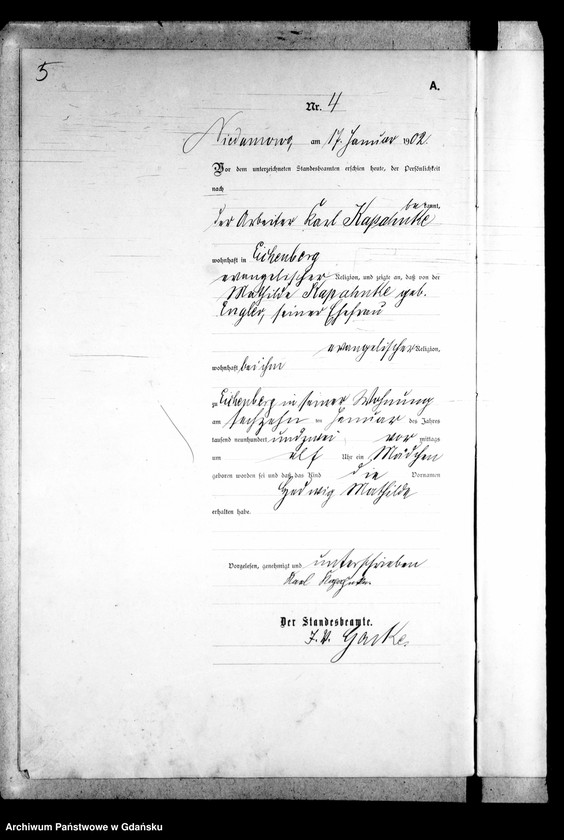 5
A.
Nr. 4
am 17. Januar 1902.
Vor dem unterzeichneten Standesbeamten erschien heute, der Persönlichkeit
nach
bekannt,
der Arbeiter Karl Kapahnke
wohnhaft in Eichenberg
evangelischer Religion, und zeigte an, daß von der
Mathilde Kapahnke geb.
Engler, seiner Ehefrau
evangelischer Religion,
wohnhaft bei ihm
zu Eichenberg in seiner Wohnung
am sechzehn ten Januar des Jahres
tausend neunhundert undzwei vor mittags
um elf Uhr ein Mädchen
geboren worden sei und daß das Kind die Vornamen
Hedwig Mathilde
erhalten habe.
Vorgelesen, genehmigt und unterschrieben
Karl Kapahnke.
Der Standesbeamte.
I. V.
Archiwum Państwowe w Gdańsku